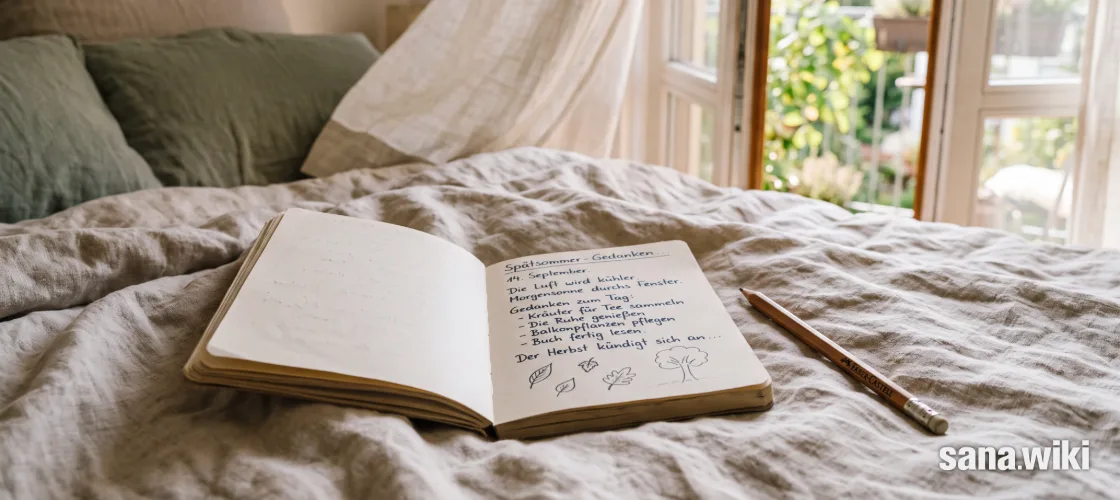 Spätsommer-Gedanken...
14. September.
Die Luft wird kühler
Morgensonne durchs Fenster.
Gedanken zum Tag:
- Kräuter für Tee sammeln
- Die Ruhe genießen
- Balkonpflanzen pflegen
- Buch fertig lesen.
Der Herbst kündigt sich an...
sana.wiki